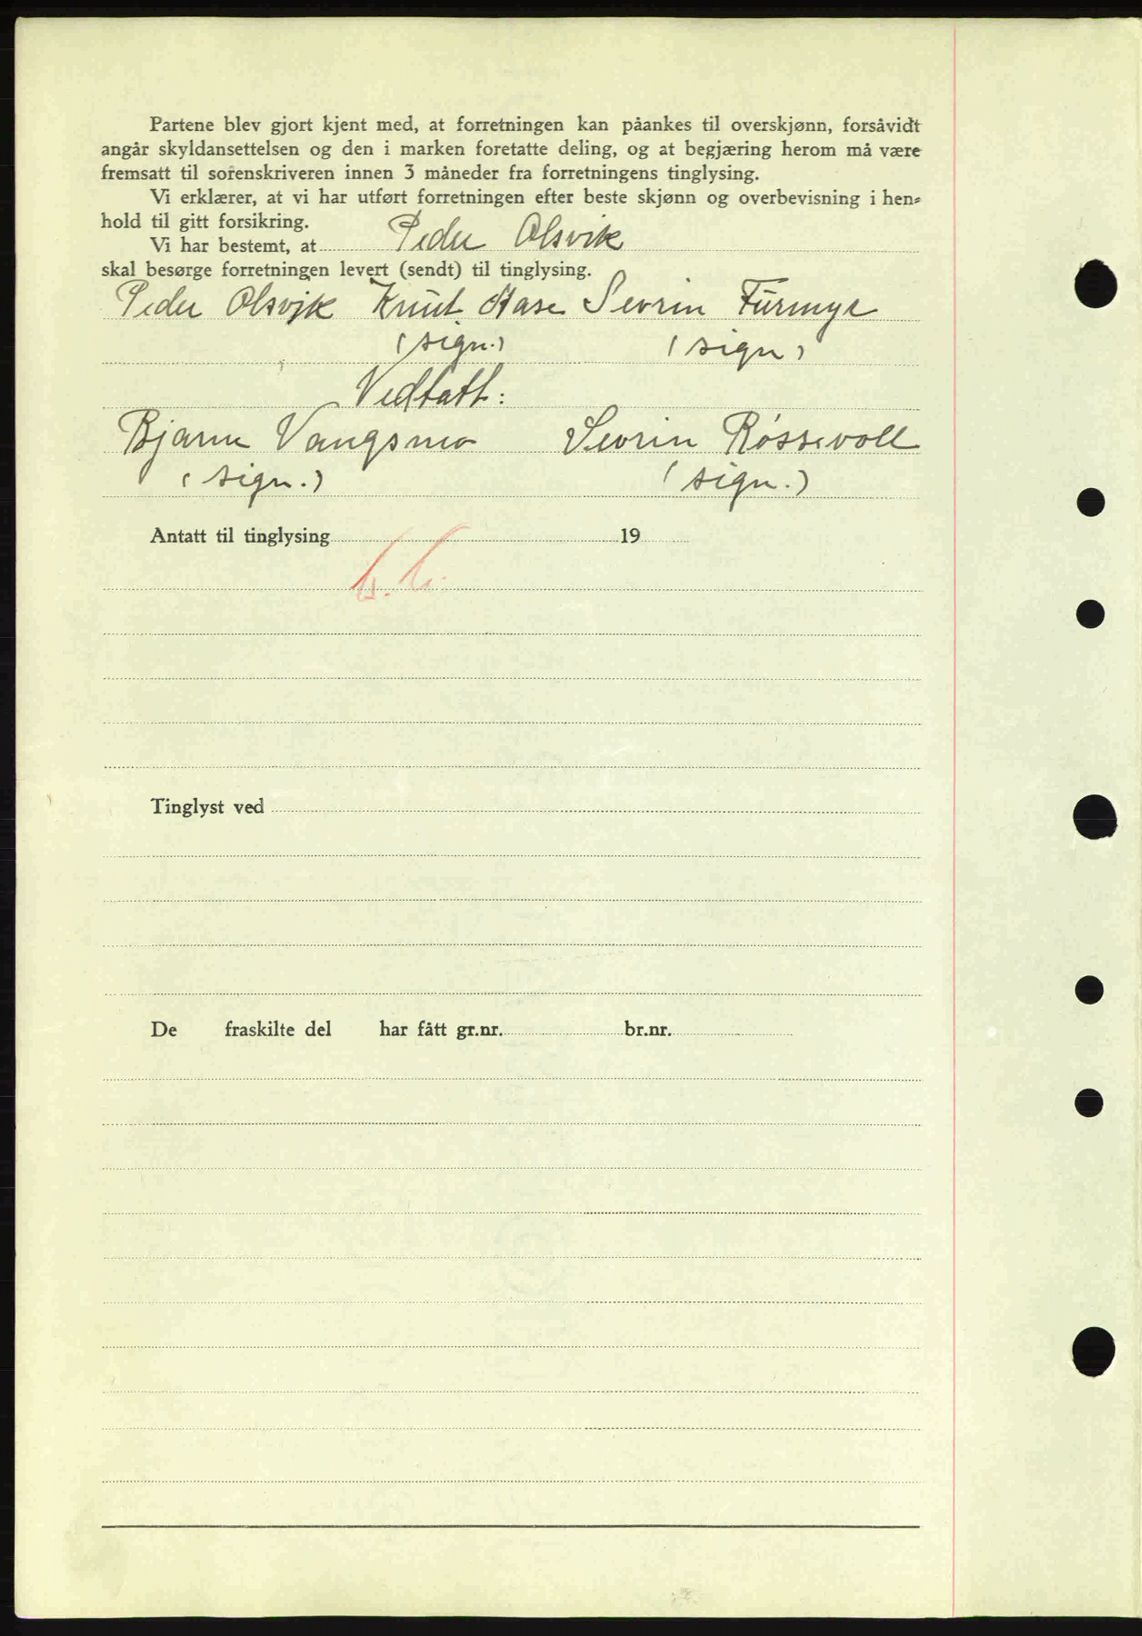 Partene blev gjort kjent med, at forretningen kan påankes til overskjønn, forsåvidt
angår skyldansettelsen og den i marken foretatte deling, og at begjæring herom må være
fremsatt til sorenskriveren innen 3 måneder fra forretningens tinglysing.
Vi erklærer, at vi har utført forretningen efter beste skjønn og overbevisning i hen-
hold til gitt forsikring.
Vi har bestemt, at Peder Olsvik
skal besørge forretningen levert (sendt) til tinglysing.
Peder Olsvik Knut Aase Sevrin Furmyr
(sign.) (sign)
Vedtatt:
Bjarne Vangsmo Sevrin Røssevoll
(sign.) (sign.)
Antatt til tinglysing 19
Tinglyst ved
De fraskilte del har fått gr.nr. br.nr.